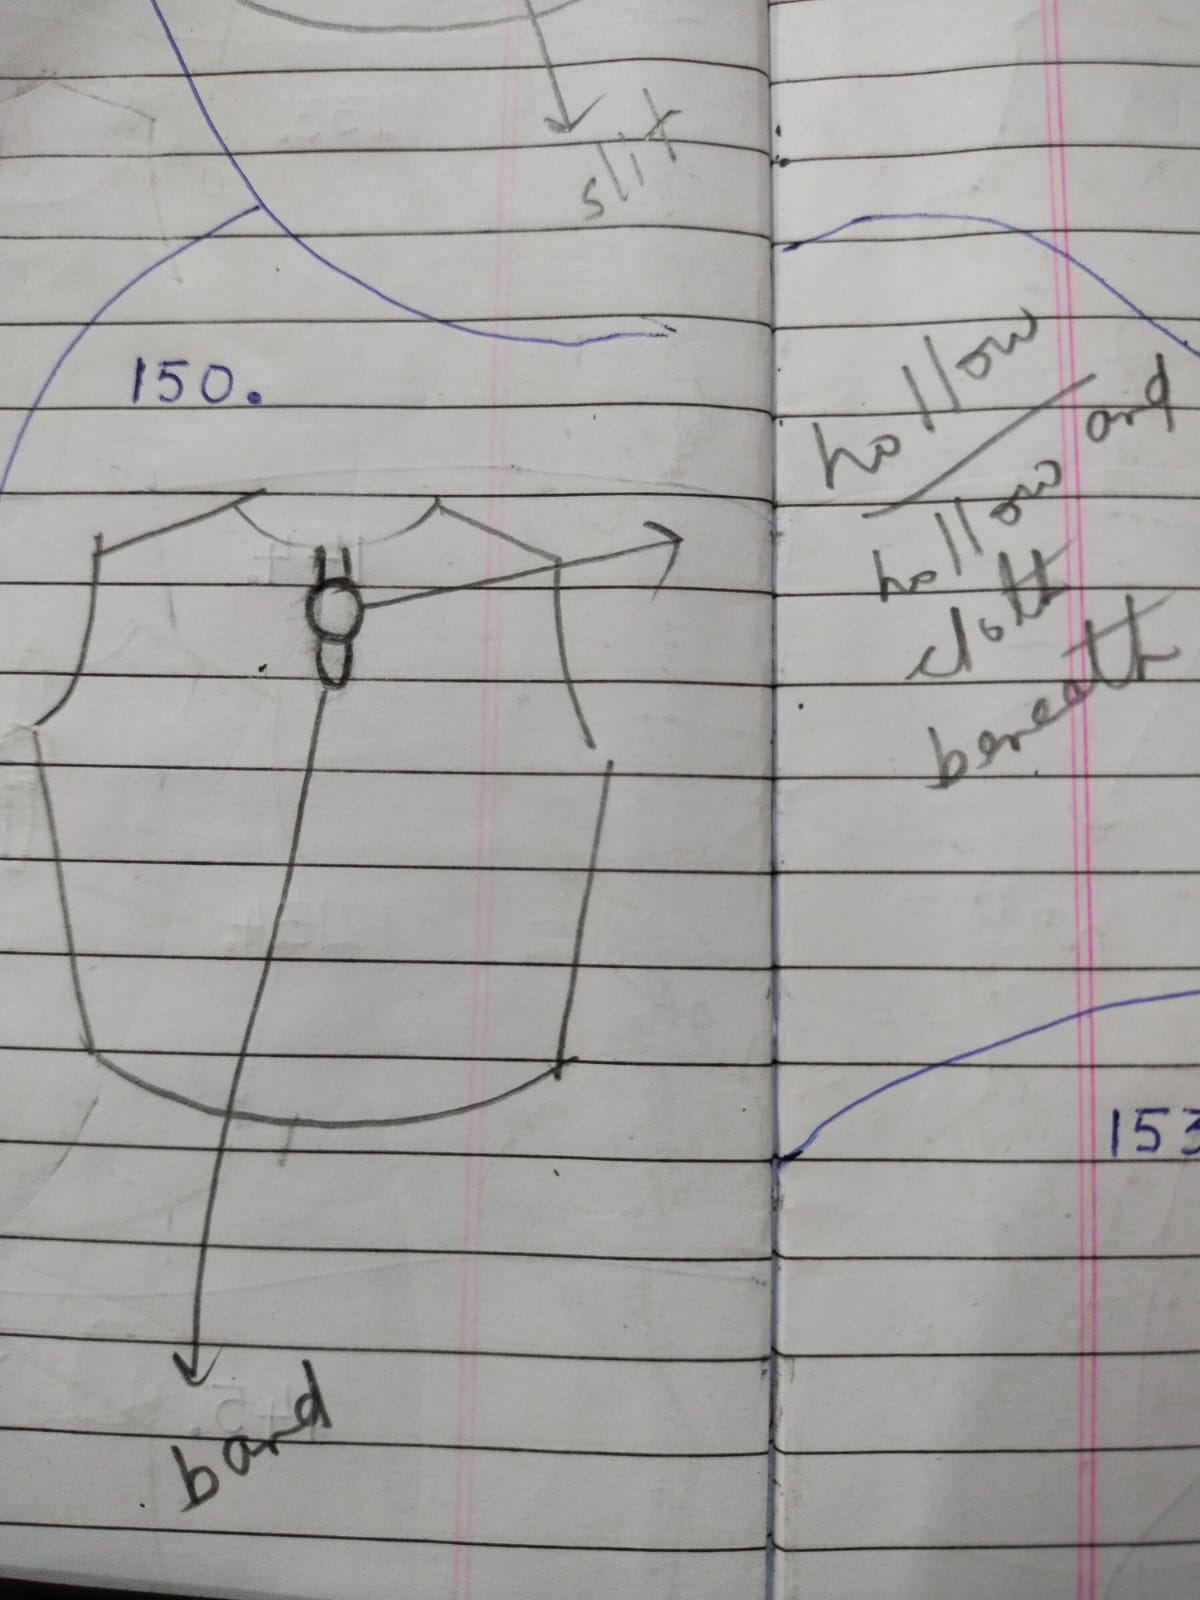 slit
150.
hollow
hollow and
cloth
beneath
153
band